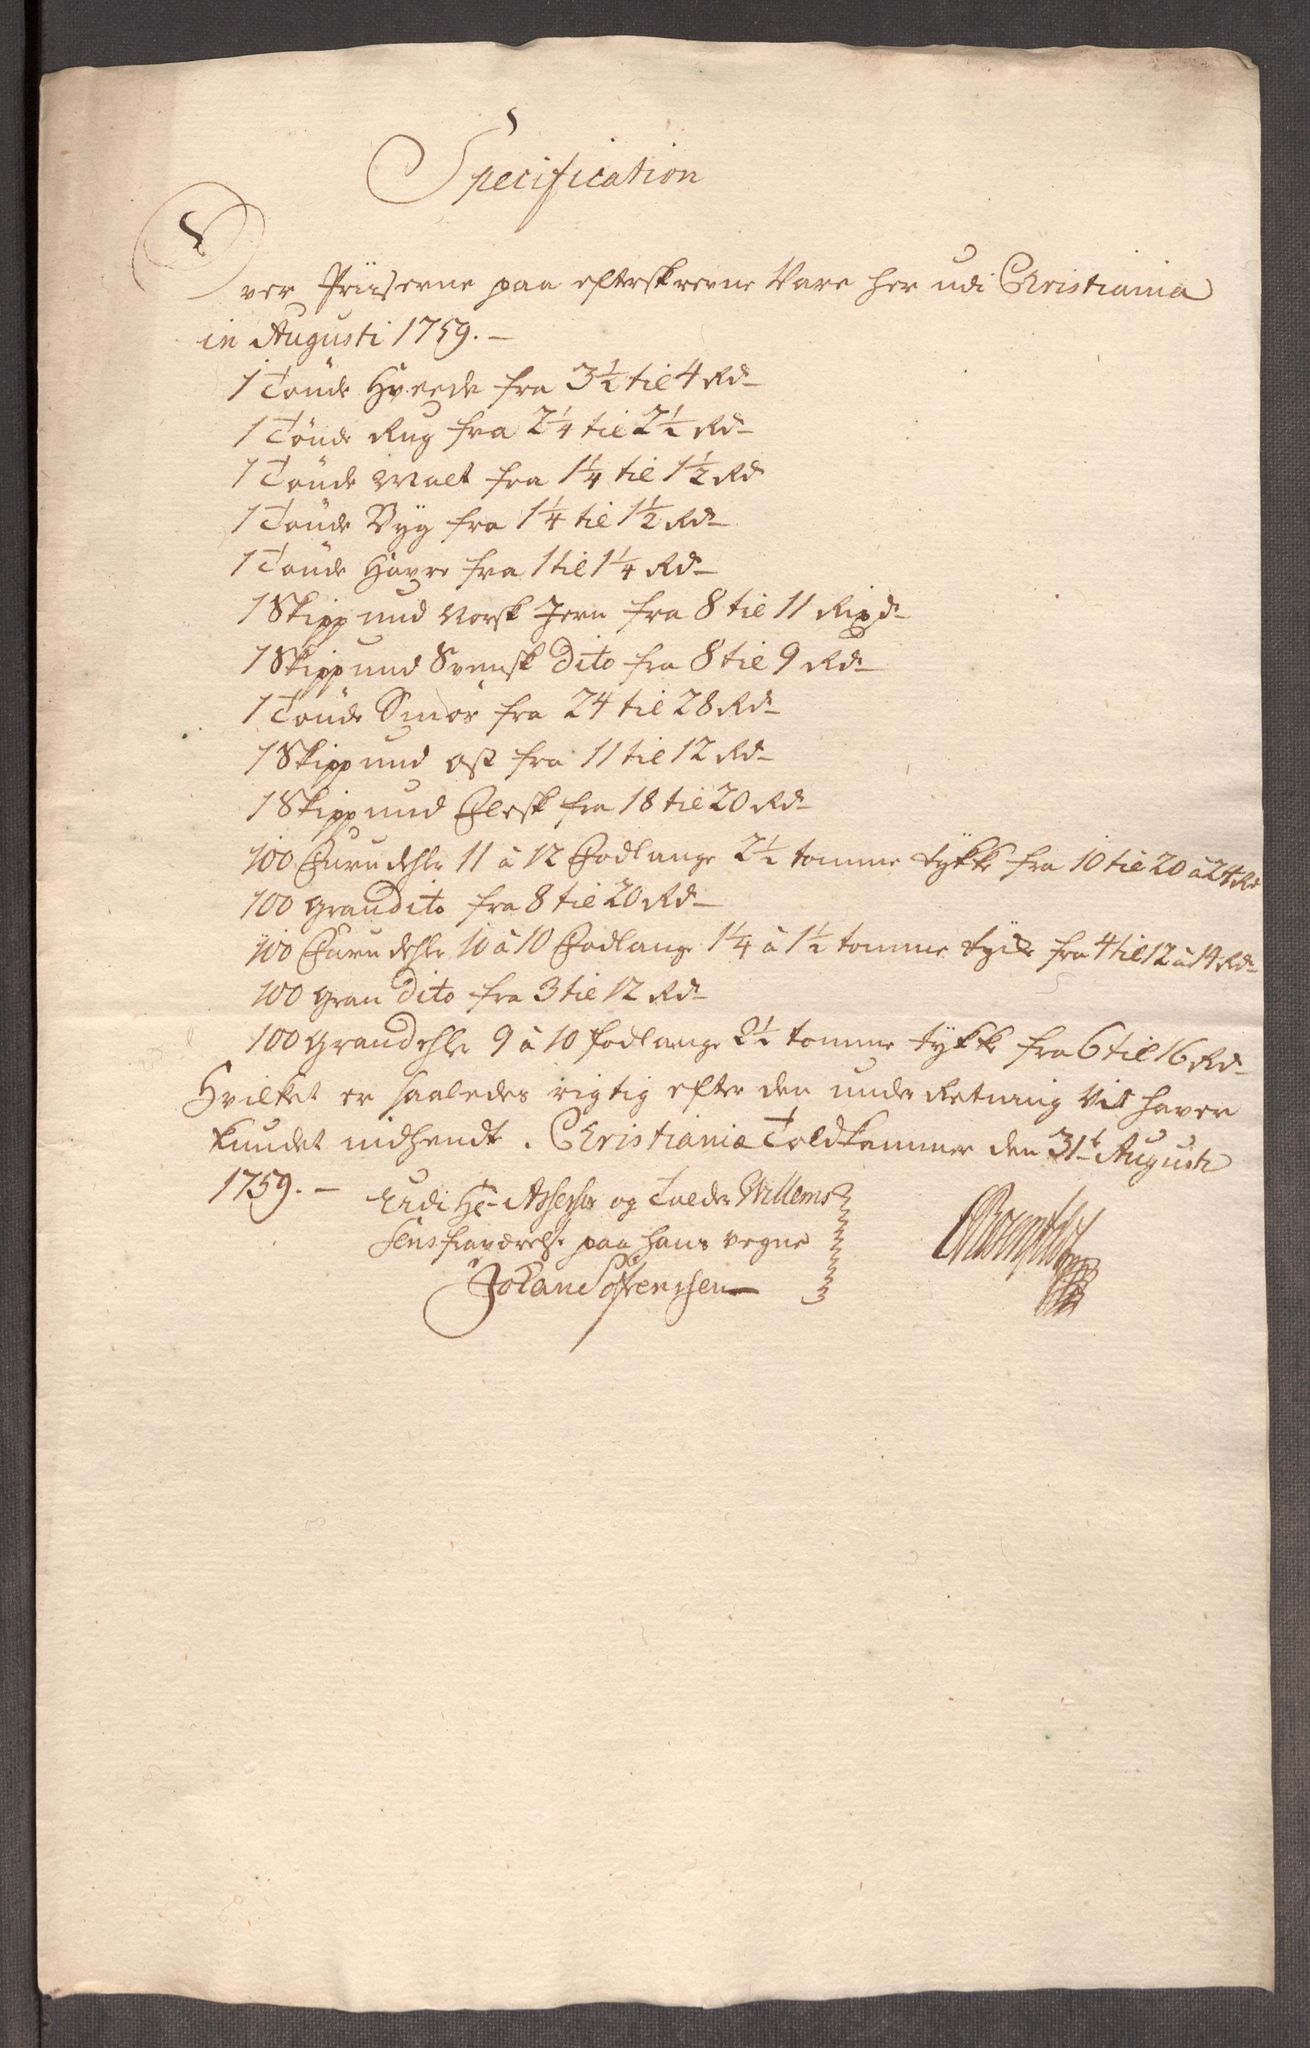 Specification
Over Priiserne paa efterskrevne Vare her udi Christiania
in Augusti 1759. –
1 Tönde Hveede fra 3½ til 4 Rd
1 Tönde Rug fra 2¼ til 2½ Rd
1 Tönde Malt fra 1¼ til 1½ Rd
1 Tönde Byg fra 1¼ til 1½ Rd
1 Tönde Havre fra 1 til 1¼ Rd
1 Skippund Norsk Jern fra 8 til 11 Rixd
1 Skippund Svensk Dito fra 8 til 9 Rd
1 Tönde Smör fra 24 til 28 Rd
1 Skippund Ost fra 11 til 12 Rd
1 Skippund Flesk fra 18 til 20 Rd
100 Furudehle 11 à 12 Fodlange 2½ tomme tykke fra 10 til 20 à 24 Rd
100 Gran dito fra 8 til 20 Rd
100 Furu dehle 10 à 10 Fodlange 1¼ à 1½ tomme tycke fra 4 til 12 à 14 Rd
100 Gran Dito fra 3 til 12 Rd
100 Grandehle 9 à 10 fodlange 2½ tomme tykke fra 6 til 16 Rd
Hvilket er saaledes rigtig efter den underRetning Vii haver
kundet indhendt. Christianiæ Toldkammer den 31t Augusti
1759. –
Udi Hr Assessor og Tolder Willems
sens fraværelse paa hans vegne
Johan Sörenssen